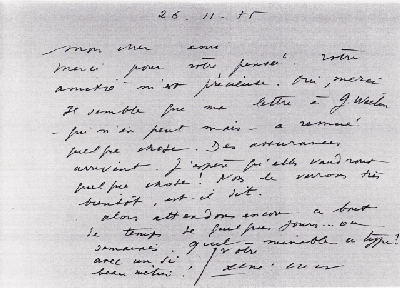 26.11.75
mon cher ami
merci pour votre pensée! votre
amitié m'est précieuse. Oui, merci
Il semble que ma lettre à G.
- qui n'en peut mais - a remué
quelque chose. Des assurances
arrivent. J'espère qu'elles vaudront
quelque chose! Nous le verrons très
bientôt, est-il dit.
alors attendons encore ce bout
de temps de quelques jours... ou
semaines. quel minable ce type!
avec un si votre
beau métier!